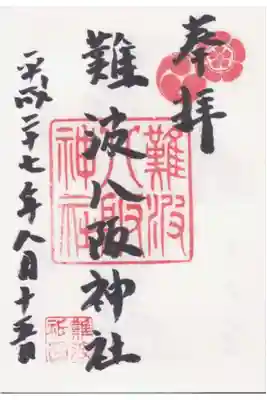 奉拝
難波八阪神社
平成二十七年八月十五日
難波八阪神社
難波祇園